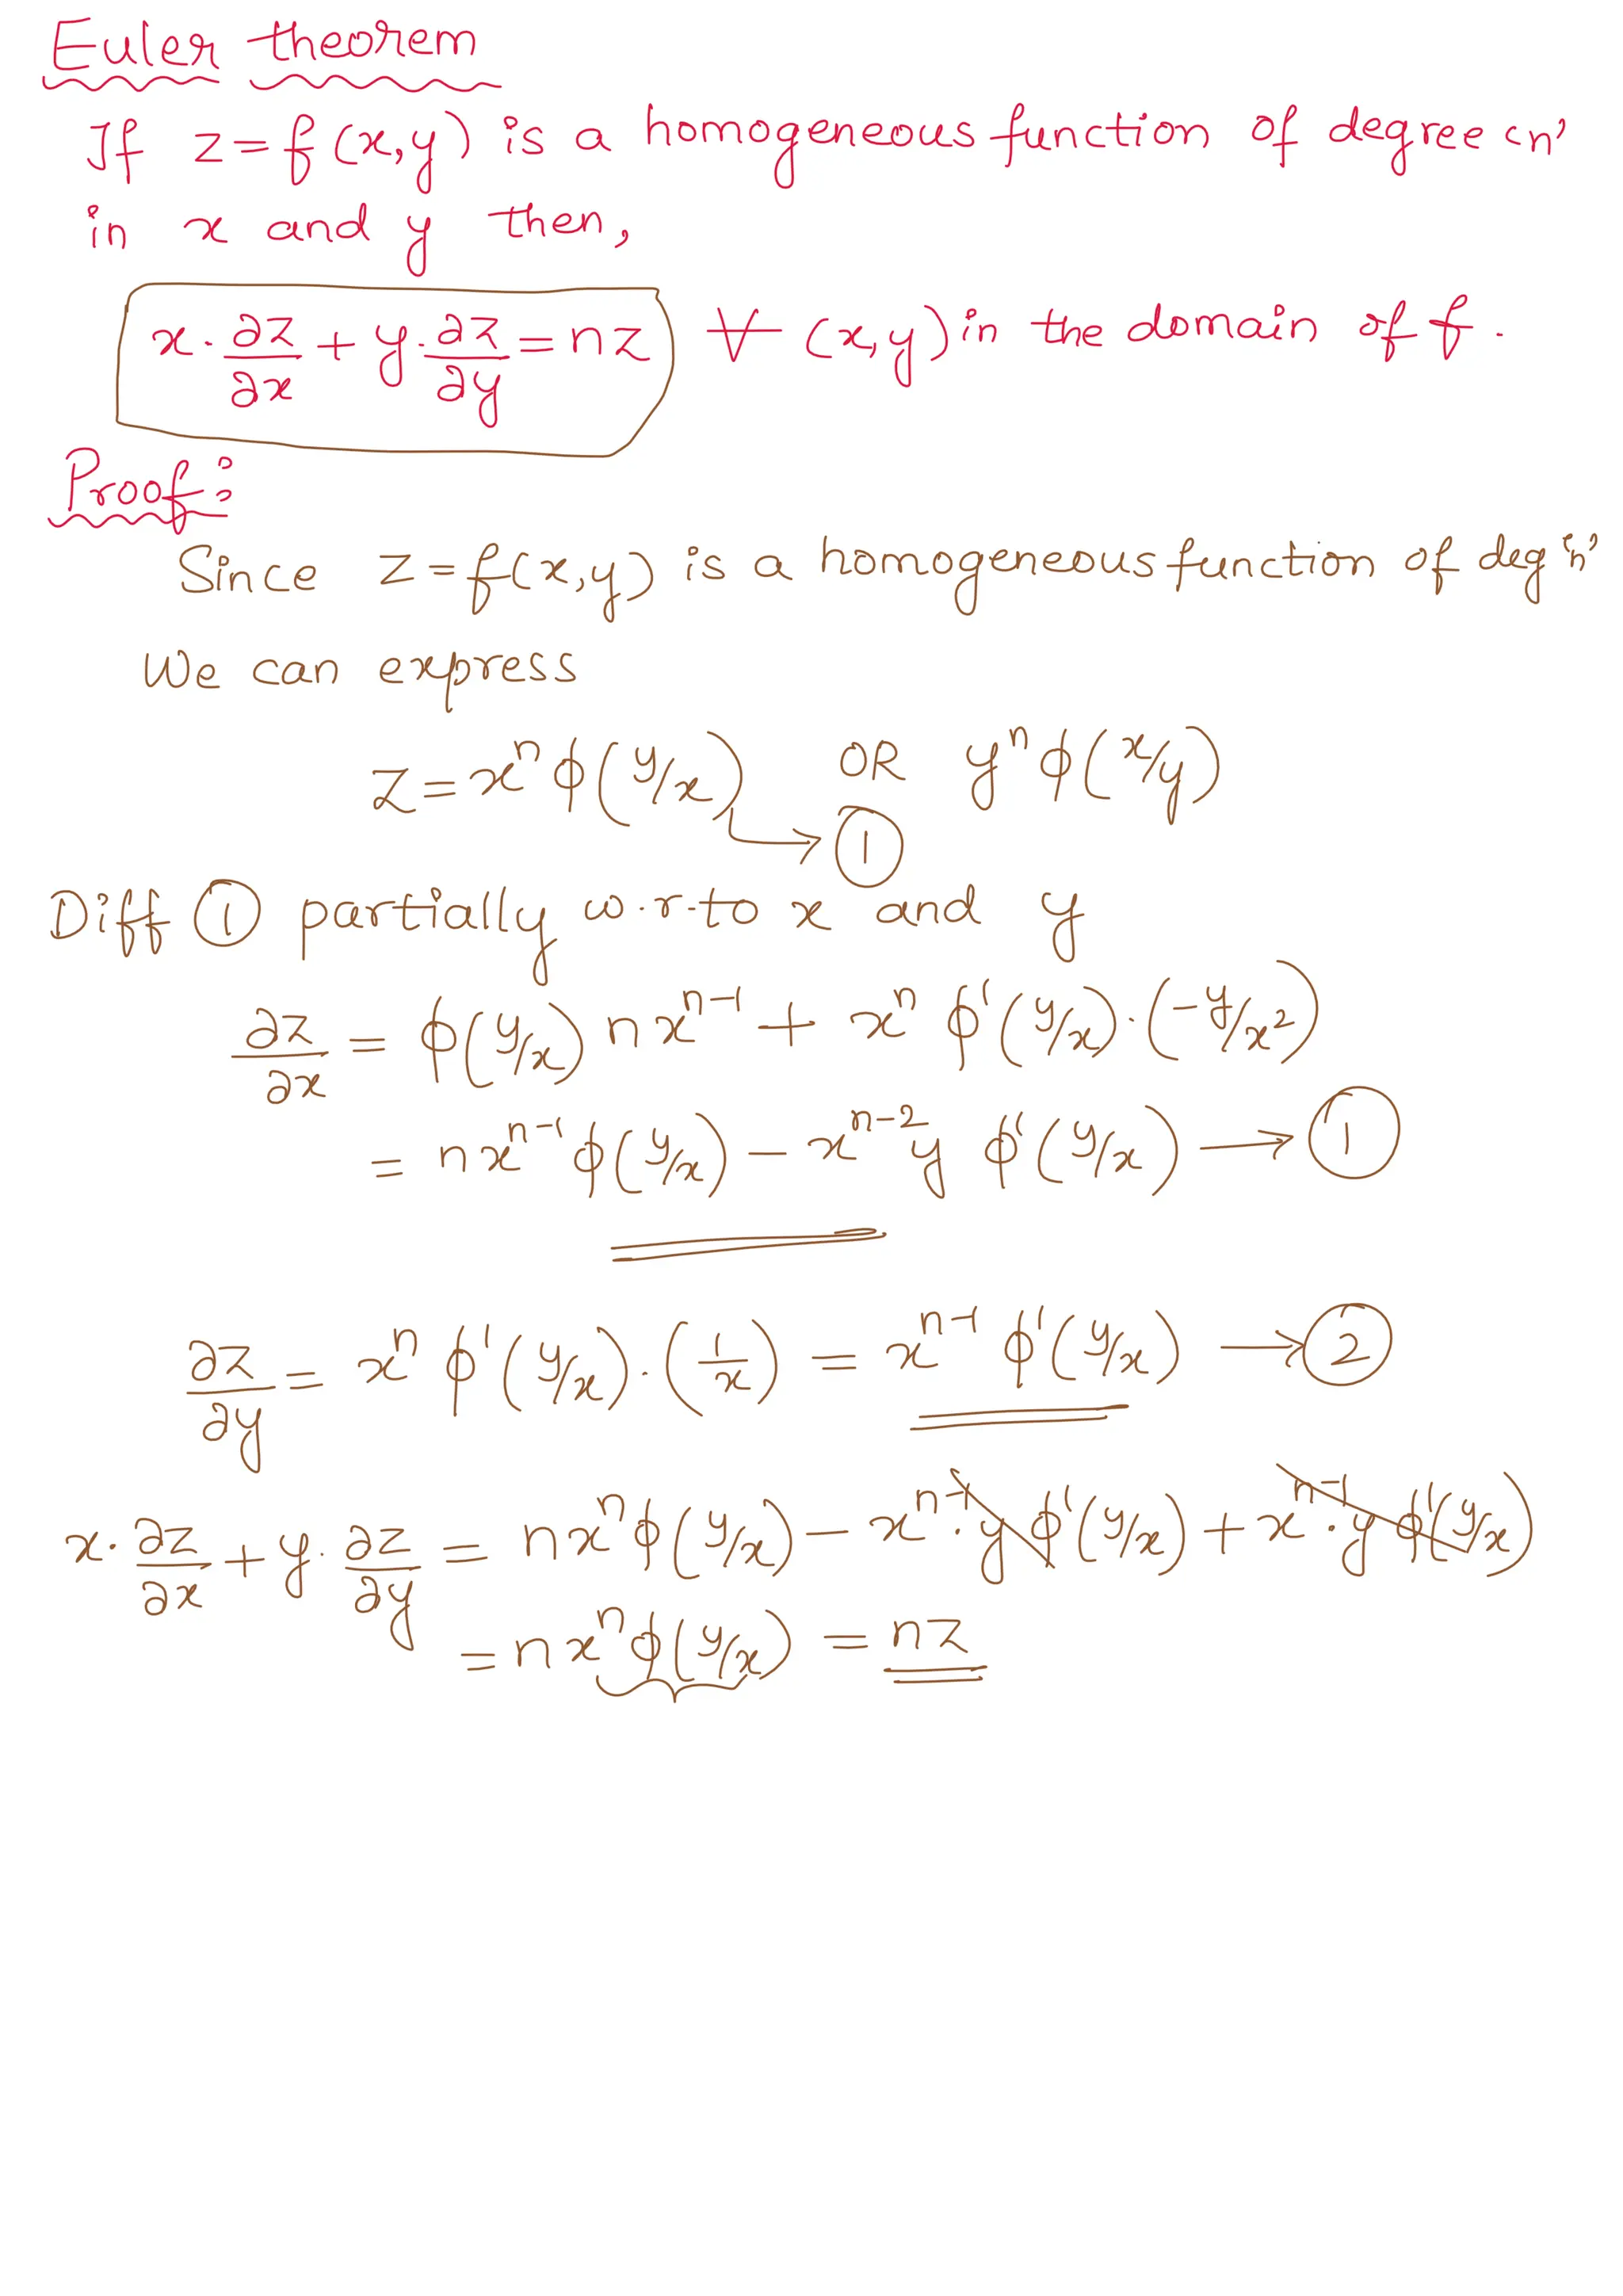 Euler theorem
If z=f(x,y) is a homogeneous function of degree 'n'
in x and y then,
x·∂z/∂x + y·∂z/∂y = nz ∀ (x,y) in the domain of f.
Proof:
Since z=f(x,y) is a homogeneous function of deg 'n'
We can express
z = xⁿ ϕ(y/x) OR yⁿ ϕ(x/y)
→ ①
Diff ① partially w.r.to x and y
∂z/∂x = ϕ(y/x) n xⁿ⁻¹ + xⁿ ϕ'(y/x)·(-y/x²)
= n xⁿ⁻¹ ϕ(y/x) − xⁿ⁻² y ϕ'(y/x) → ①
∂z/∂y = xⁿ ϕ'(y/x)·(1/x) = xⁿ⁻¹ ϕ'(y/x) → ②
x·∂z/∂x + y·∂z/∂y = n xⁿ ϕ(y/x) − xⁿ⁻¹·y ϕ'(y/x) + xⁿ⁻¹·y ϕ'(y/x)
= n xⁿ ϕ(y/x) = nz